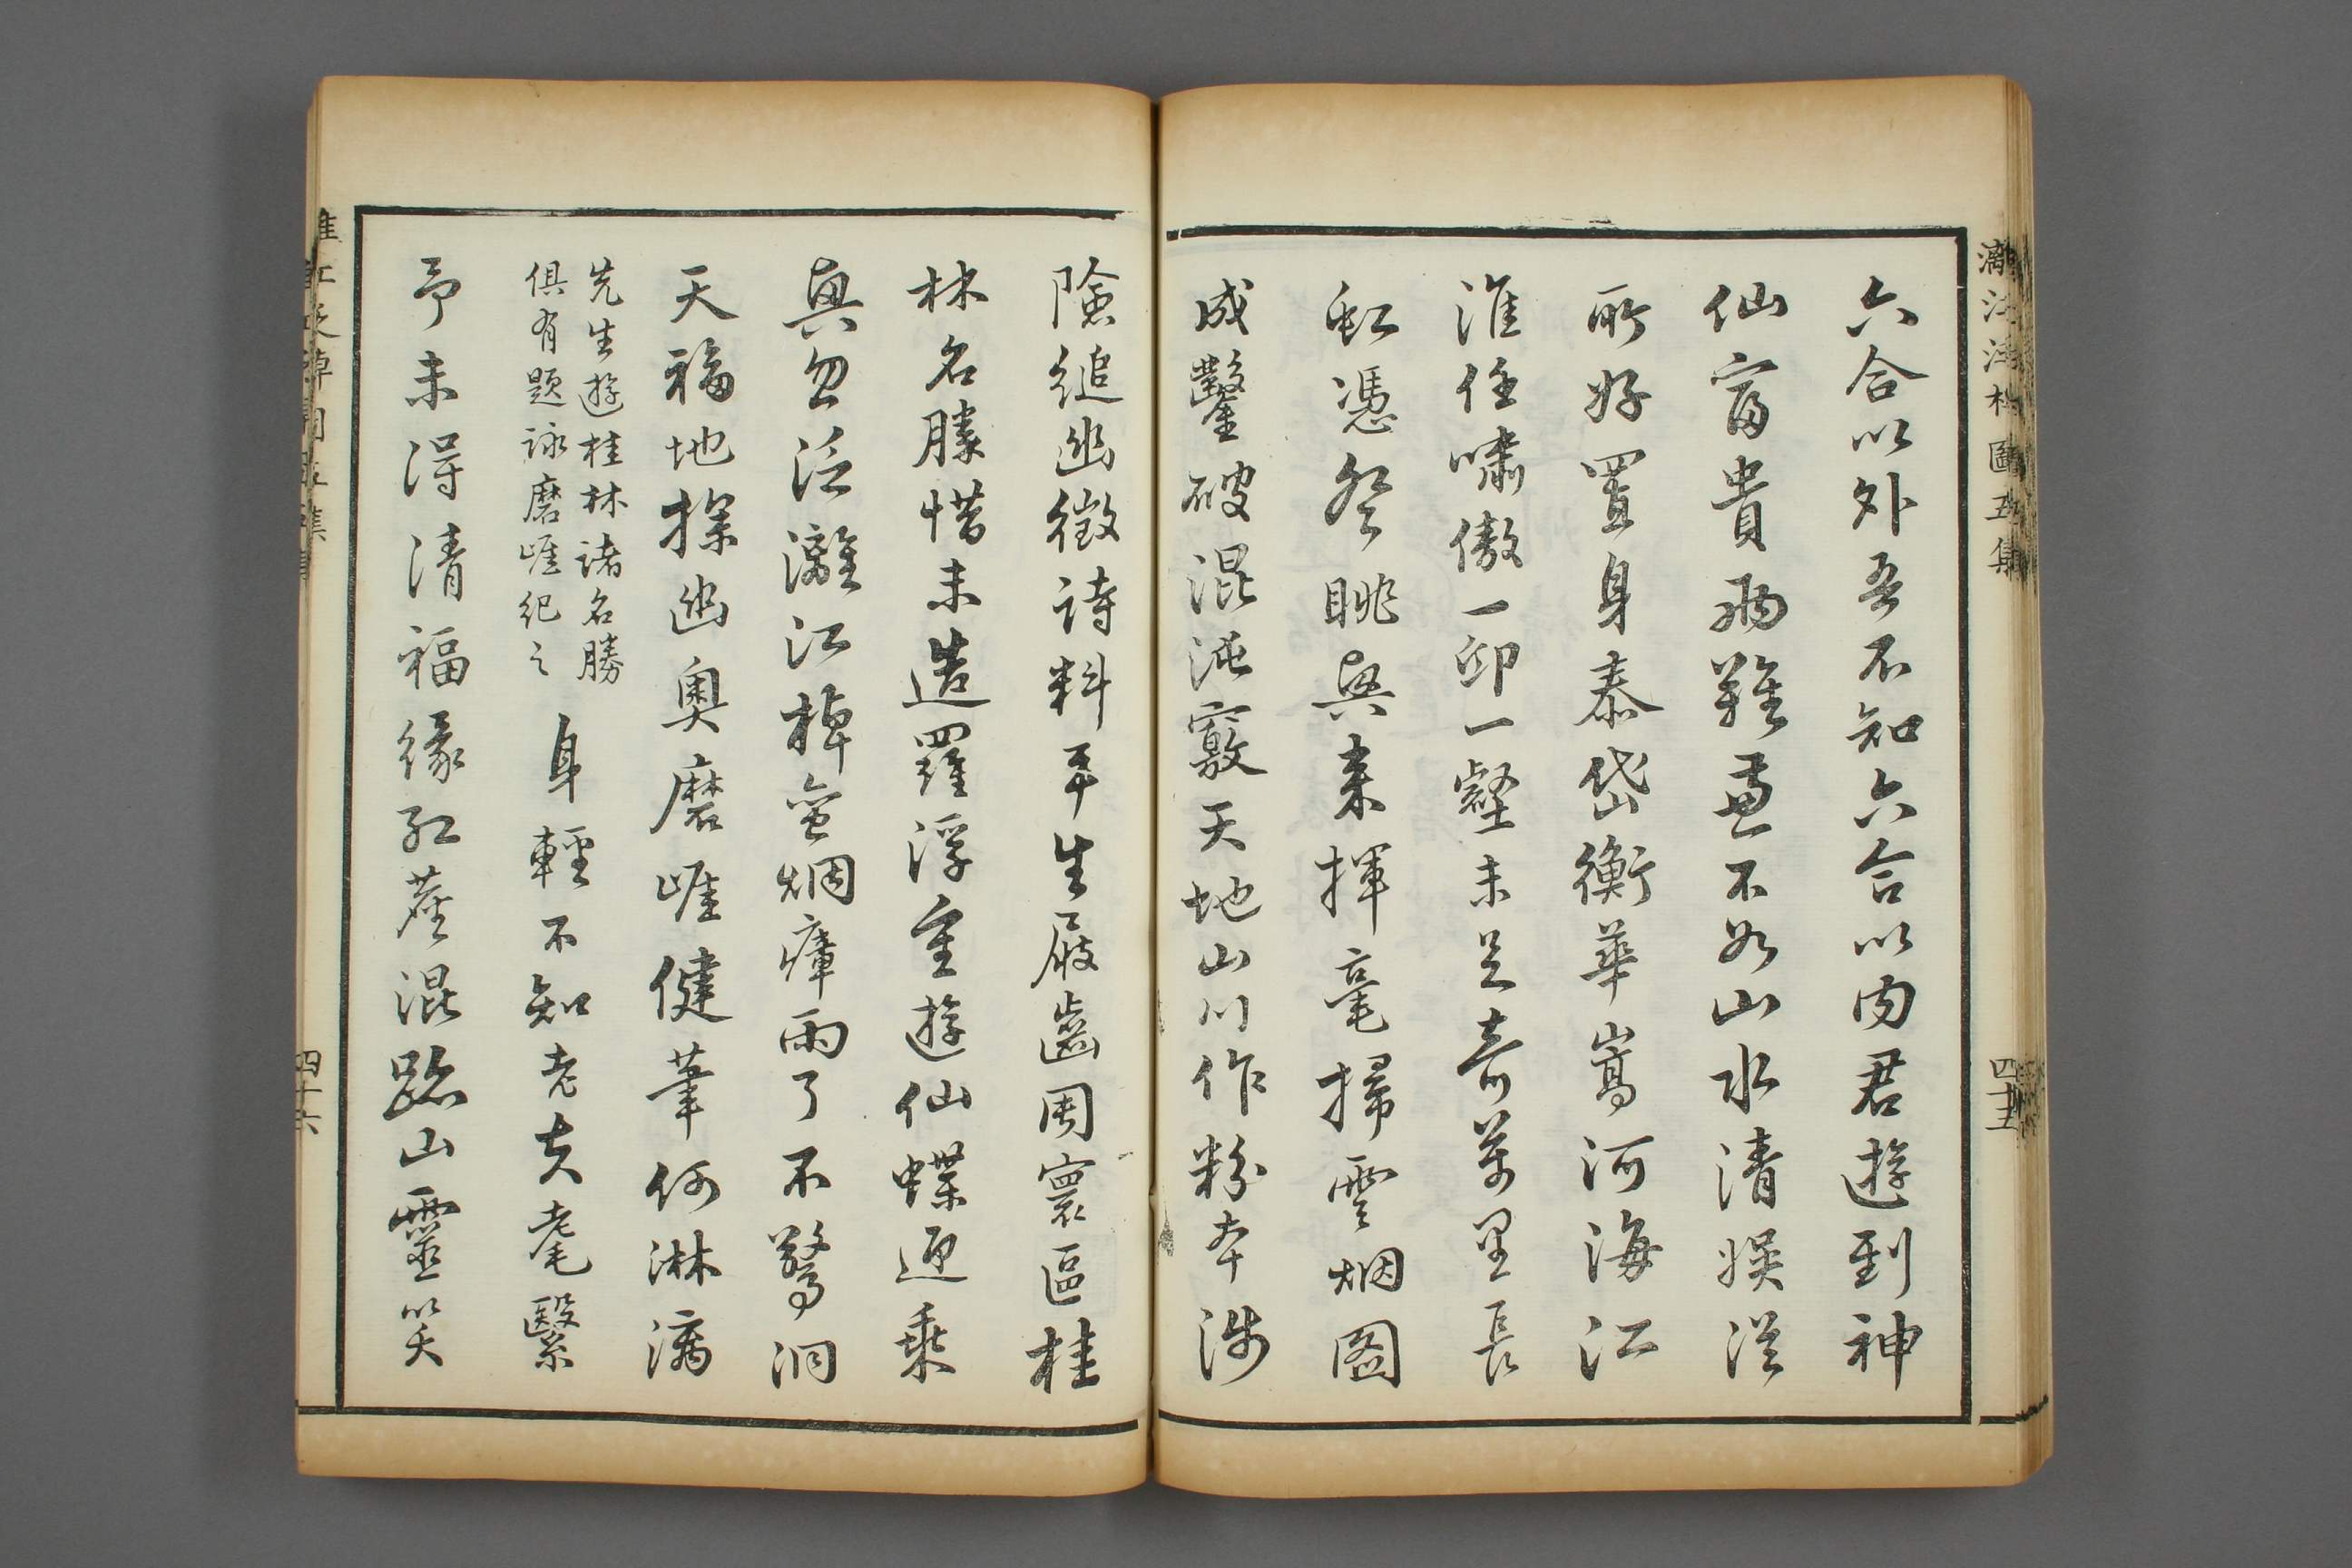 灕江泛棹圖五集
四十五
六合以外吾不知六合以内君遊到神
仙富貴兩難兼不如山水清娱從
所好置身泰岱衡華嵩河海江
淮任嘯傲一邱一壑未足奇萬里長
虹憑登眺興來揮毫掃雲烟圖
成鑿破混沌竅天地山川作粉本涉
險縋幽徵詩料平生屐齒周寰區桂
林名勝惜未造羅浮重遊仙蝶迎乘
興忽泛灕江棹蠻烟瘴雨了不驚洞
天福地探幽奥磨崖健筆何淋漓
先生遊桂林諸名勝
俱有題詠磨崖紀之
身輕不知老夫耄繄
予未得清福緣紅塵混跡山靈笑
四十六